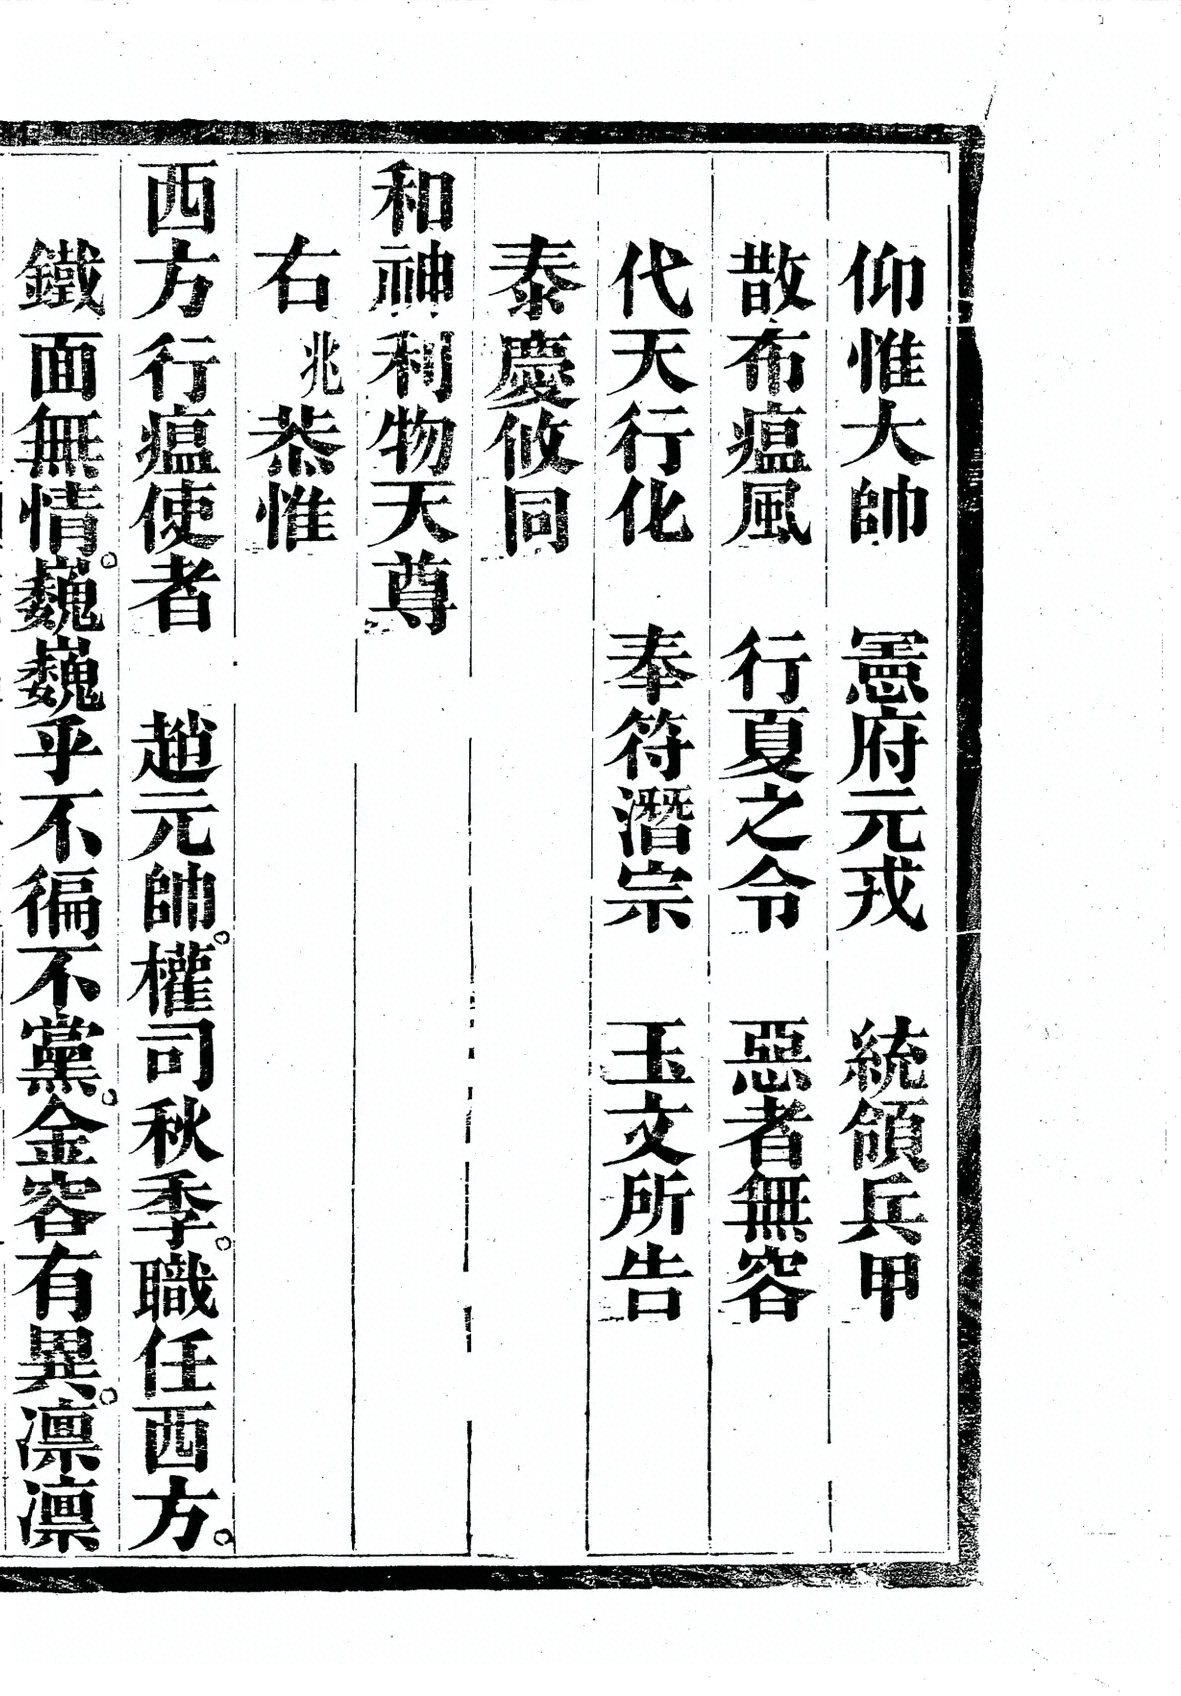 仰惟大帥　憲府元戎　統領兵甲
散布瘟風　行夏之令　惡者無容
代天行化　奉符潛宗　玉文所告
泰慶攸同
和神利物天尊
右兆恭惟
西方行瘟使者　趙元帥。權司秋季。職任西方。
鐵面無情。巍巍乎不徧不黨。金容有異。凛凛